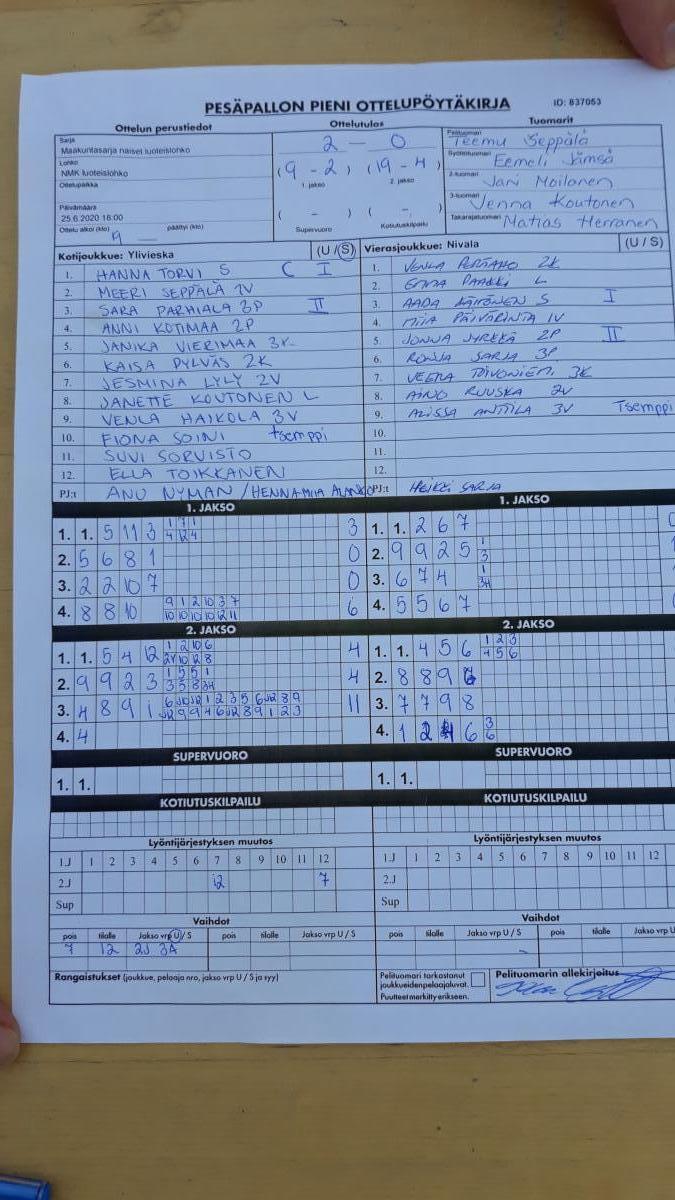 PESÄPALLON PIENI OTTELUPÖYTÄKIRJA ID: 837053
Ottelun perustiedot Ottelutulos Tuomarit
Sarja
Maakuntasarja naiset luoteislohko
Lohko
NMK luoteislohko
Ottelupaikka
Päivämäärä
25.6.2020 18:00
Ottelu alkoi (klo) päättyi (klo)
2 — 0
(9 - 2) (19 - 4)
1. jakso 2. jakso
( - ) ( - )
Supervuoro Kotiutuskilpailu
Pelituomari
Teemu Seppälä
Syöttötuomari
Eemeli Jämsä
2-tuomari
Jani Moilanen
3-tuomari
Venna Koutonen
Takarajatuomari Matias Herranen
Kotijoukkue: Ylivieska (U / S)
1. HANNA TORVI S C I
2. MEERI SEPPÄLÄ 1V
3. SARA PARHIALA 3P II
4. ANNI KOTIMAA 2P
5. JANIKA VIERIMAA 3K
6. KAISA PYLVÄS 2K
7. JESMINA LYLY 2V
8. JANETTE KOUTONEN L
9. VENLA HAIKOLA 3V
10. FIONA SOINI tsemppi
11. SUVI SORVISTO
12. ELLA TOIKKANEN
PJ:t ANU NYMAN / HENNAMIIA
Vierasjoukkue: Nivala (U / S)
1. VENLA 2K
2. L
3. AADA S I
4. MIIA PÄIVÄRINTA 1V
5. JONNA JYRKKÄ 2P II
6. RONJA SARJA 3P
7. VEERA 3K
8. AINO RUUSKA 2V
9. ALISSA ANTTILA 3V Tsemppi
10.
11.
12.
PJ:t HEIKKI SARJA
1. JAKSO
1. 1. 5 11 3 3
2. 5 6 8 1 0
3. 2 2 10 7 0
4. 8 8 10 6
1. JAKSO
1. 1. 2 6 7
2. 9 9 2 5 1 3
3. 6 7 4
4. 5 5 6 7
2. JAKSO
1. 1. 5 4 12 4
2. 9 9 2 3 4
3. 4 8 9 1 11
4. 4
2. JAKSO
1. 1. 4 5 6 1 2 3
4 5 6
2. 8 8 9
3. 7 7 9 8
4. 1 2 6 3
6
SUPERVUORO
1. 1.
SUPERVUORO
1. 1.
KOTIUTUSKILPAILU
KOTIUTUSKILPAILU
Lyöntijärjestyksen muutos
1.J 1 2 3 4 5 6 7 8 9 10 11 12
2.J 12 7
Sup
Lyöntijärjestyksen muutos
1.J 1 2 3 4 5 6 7 8 9 10 11 12
2.J
Sup
Vaihdot
pois tilalle Jakso vrp U / S pois tilalle Jakso vrp U / S
7 12 2J 3A
Vaihdot
pois tilalle Jakso vrp U / S pois tilalle Jakso vrp U
Rangaistukset (joukkue, pelaaja nro, jakso vrp U / S ja syy)
Pelituomari tarkastanut
joukkueiden pelaajaluvat.
Puutteet merkitty erikseen.
Pelituomarin allekirjoitus